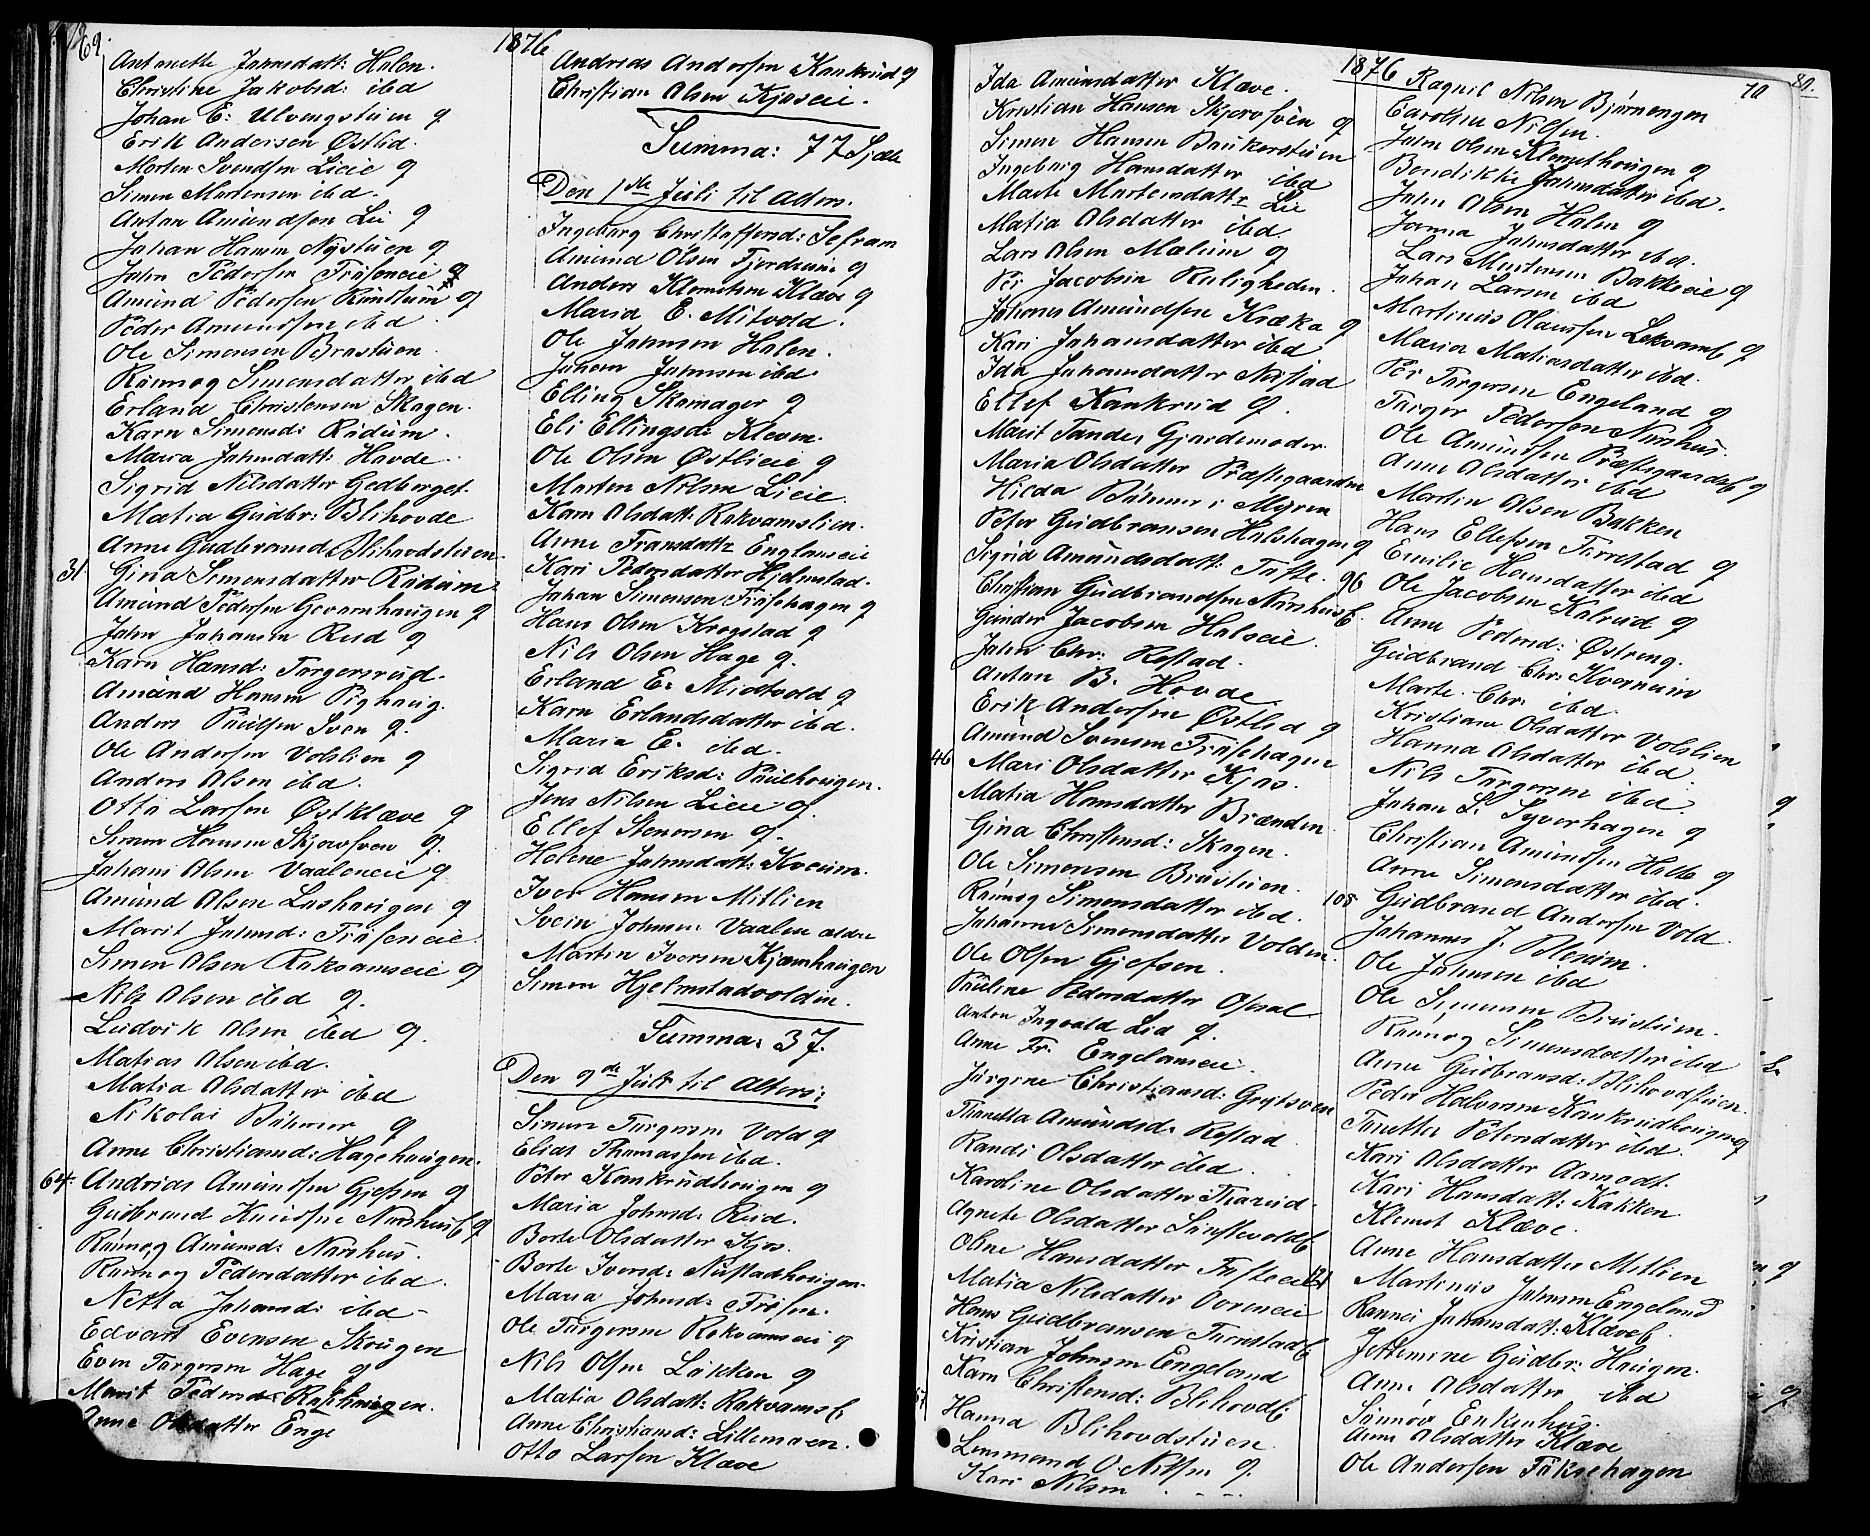 69.
1876
Antonette Jahnsdatt: Halen.
Christine Jakobsd: ibd
Johan E: Ulvengstuen og
Erik Andersen Østlid.
Morten Svendsen Lieie og
Simen Martensen ibd.
Anton Amundsen Lie og
Johan Hansen Nystuen og
Jahn Pedersen Fråseneie og
Amund Pedersen Rundtum og
Peder Amundsen ibd
Ole Simensen Brustuen.
Rønnog Simensdatter ibd
Erland Christensen Skagen.
Karn Simensd: Rudum.
Maria Jahnsdatt: Hovde.
Sigrid Nilsdatter Gedberget.
Matia Gudbr: Blihovde
Anne Gudbrandsd. Blihovdstuen.
31 Gina Simensdatter Rudum
Amund Pedersen Govarnhaugen og
Jahn Johansen Rud og
Karn Hansd: Torgersrud.
Amund Hansen Pighaug.
Anders Paulsen Sven og.
Ole Andersen Volslien og
Anders Olsen ibd.
Otto Larsen Østklæve og
Simen Hansen Skjærvsven og.
Johans Olsen Vaaleneie og
Amund Olsen Lushaugen og
Marit Jahnsd: Fråseneie
Simen Olsen Rakvamseie og
Nils Olsen ibd og.
Ludvik Olsen ibd og.
Matias Olsen ibd.
Matia Olsdatter ibd
Nikolai Bühmer og
Anne Christiansd: Hagehaugen.
64. Andreas Amundsen Gjefsen og
Gudbrand Knudsen Narshusb og
Rønnog Amunsd: Narshus.
Rønnog Pedersdatter ibd.
Netta Johansd: ibd
Edvart Evensen Skougen
Even Torgersen Hage og
Marit Pedersd: Raskhaugen.
Anne Olsdatter Enge
Andreas Andersen Kankrud og
Christian Olsen Kjoseie.
Summa: 77 Sjæle
Den 1de Juli til Alters.
Ingeborg Christoffersd: Sefram
Amund Olsen Fjordheim og
Anders Klemetsen Klæve og
Maria E. Mitvold.
Ole Jahnsen Halen.
Johan Jahnsen ibd.
Elling Skamager og
Eli Ellingsd: Kleven.
Ole Olsen Østlieie og
Morten Nilsen Lieie.
Karn Olsdatt: Rakvamslien.
Anne Fransdatt: Englaneie
Kari Pedersdatter Hjelmstad.
Johan Simensen Fråsehagen og
Hans Olsen Krogstad og
Nils Olsen Hage og.
Erland E: Midtvold og
Karn Erlandsdatter ibd.
Maria E. ibd.
Sigrid Eriksd: Paulhougen.
Jens Nilsen Lieie og.
Ellef Stenersen og.
Helene Jahnsdatt: Kveum.
Iver Hansen Mitlien
Svein Johnsen Vaalen ældre
Martin Iversen Kjærnhaugen
Simen Hjelmstadvolden.
Summa: 37.
Den 9de Juli til Alters:
Simen Torgersen Vold og
Elias Thomassen ibd.
Peter Kankrudhougen og
Maria Johnsd: Rud.
Borte Olsdatter Kjos.
Borte Iversd: Nustadhougen.
Maria Johnsd: Fråsen.
Ole Torgersen Rakvamseie og
Nils Olsen Løkken og
Matia Olsdatt: Rakvamsb
Anne Christiansd: Lillemoen.
Otto Larsen Klæve
1876
70
Ida Amunsdatter Klæve.
Kristian Hansen Skjærvsven og
Simen Hansen Baukerstuen
Ingeborg Hansdatter ibd
Marte Martensdatt: Lie
Matia Olsdatter ibd.
Lars Olsen Mælum og
Per Jacobsen Roligheden.
Johannes Amundsen Kræka og
Kari Johansdatter ibd
Ida Johannsdatter Nustad
Ellef Kankrud og.
Marit Fander Gjordemoder.
Maria Olsdatter Præstegaarden
Hilda Bühmer i Myren
Peter Gudbransen Halshagen og
Sigrid Amundsdatt: Tufte. 96
Christian Gudbrandsen Narshusb.
Gunder Jacobsen Halseie.
Jahn Chr: Rostad.
Anton B. Hovde
Erik Andersen Østlid og
Amund Svensen Fråsehagen
46 Mari Olsdatter Kjos.
Matia Hansdatter Brænden
Gina Christensd: Skagen.
Ole Simensen Brustuen.
Rønnog Simensdatter ibd.
Johanne Simensdatter Volden.
Ole Olsen Gjefsen.
Pauline Pedersdatter Opsal
Anton Ingvald Lid og.
Anne Fr. Englaneie.
Jørgine Christiansd: Grytsven
Thonetta Amundsd. Rostad.
Randi Olsdatter ibd.
Karoline Olsdatter Tharud.
Agnete Olsdatter Sørstevoldb
Oline Hansdatter Tufteeie
Matia Nilsdatter Ooreneie
Hans Gudbransen Turnstadb
Kristian Johnsen Engeland
Karn Christensd: Blihovdb:
Hanna Blihovdstuen
Lemmend O. Nilsen og.
Kari Nilsen
Ragnil Nilsen Bjørnengen
Caroline Nilsen.
Jahn Olsen Klemethougen og
Bendikke Jahnsdatter ibd.
Jahn Olsen Halen og
Jonna Jahnsdatter ibd.
Lars Martensen Bakkeeie og
Johan Larsen ibd
Martinus Olaussen Lekvamb og
Maria Matiasdatter ibd.
Per Torgersen Engeland og
Torger Pedersen Narshus.
Ole Amundsen Præstegaardsb og
Anne Olsdatter ibd
Martin Olsen Bakken
Hans Ellefsen Turrestad og
Emilie Hansdatter ibd
Ole Jacobsen Kalrud og
Anne Pedersd: Østreng.
Gudbrand Chr: Kvernum
Marte Chr. ibd.
Kristiane Olsdatter Volslien
Hanna Olsdatter ibd.
Nils Torgersen ibd.
Johan L. Syverhagen og
Christian Amundsen Halle og
Anne Simensdatter ibd.
108 Gudbrand Andersen Vold
Johannes J. Blesum.
Ole Johnsen ibd
Ole Simensen Brustuen.
Rønnog Simensdatter ibd
Anne Gudbransd: Blihovdstuen.
Peder Halvorsen Kankrudhougen og
Tonetta Petersdatter ibd.
Kari Olsdatter Aamodt.
Kari Hansdatt: Kakken
Klemet Klæve.
Anne Hansdatter Mitlien
Martinus Johnsen Engeland
Rønnei Johansdatt: Klæveb.
Jettemine Gudbr: Haugen.
Anne Olsdatter ibd
Synnøv Enkenhus.
Anne Olsdatter Klæve
Ole Andersen Fåksehagen